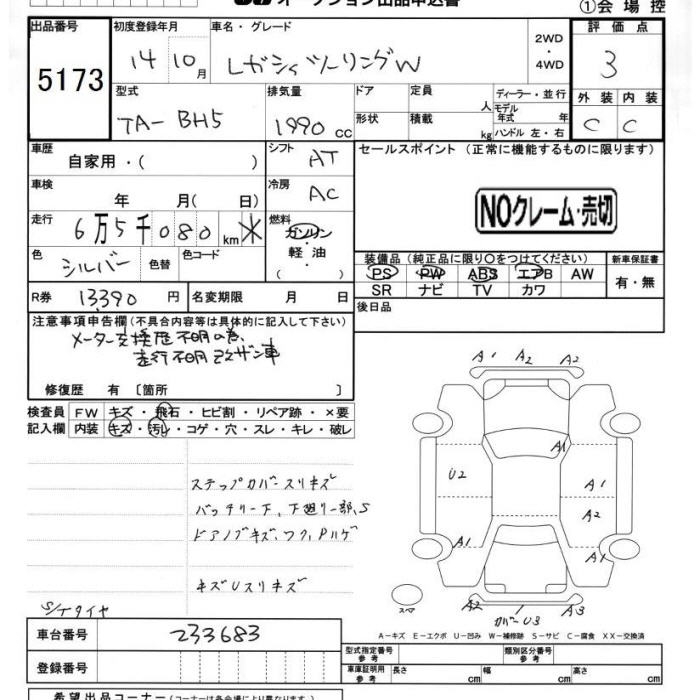 オークション出品申込書
①会場控
出品番号
5173
初度登録年月
14 10月
車名・グレード
レガシィツーリングW
2WD
・
4WD
評価点
3
型式
TA-BH5
排気量
1990 cc
ドア
定員
人
ディーラー・並行
形状
積載
kg
モデル年式 年
ハンドル 左・右
外装 内装
C C
車歴
自家用・( )
シフト
AT
セールスポイント (正常に機能するものに限ります)
車検
年 月( 日)
冷房
AC
NOクレーム・売切
走行
6万5千080km ※
燃料
ガソリン
・
軽油
( )
色
シルバー
色替
色コード
装備品(純正品に限り○をつけてください)
PS PW ABS エアB AW
SR ナビ TV カワ
新車保証書
有・無
R券
13390円
名変期限 月 日
後日品
注意事項申告欄(不具合内容等は具体的に記入して下さい)
メーター交換歴不明の為、
走行不明改ザン車
修復歴 有 〔箇所 〕
検査員
記入欄
FW キズ・飛石・ヒビ割・リペア跡・×要
内装 キズ・汚レ・コゲ・穴・スレ・キレ・破レ
A1 A2 A2
A1
U2
A1
A2
A1
A1
ステップカバースリキズ
バッテリー下、下廻り一部、S
ドアノブキズ、フク、Pハゲ
キズUスリキズ
S/Tタイヤ
スペア
A2
カバーU3
A3
A-キズ E-エクボ U-凹み W-補修跡 S-サビ C-腐食 XX-交換済
車台番号
233683
登録番号
型式指定番号
参考
類別区分番号
参考
車庫証明用
参考
長さ cm
幅 cm
高さ cm
希望出品コーナー(コーナーは各会場により異なります。)